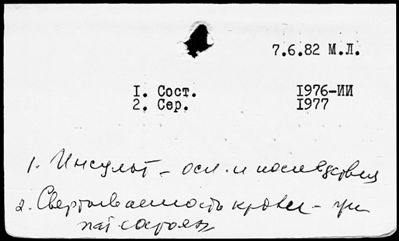 7.6.82 М.Л.
I. Сост. I976-ИИ
2. Сер. I977
1. Инсульт - осл. и последствия
2. Свертываемость крови - при
пат состоян